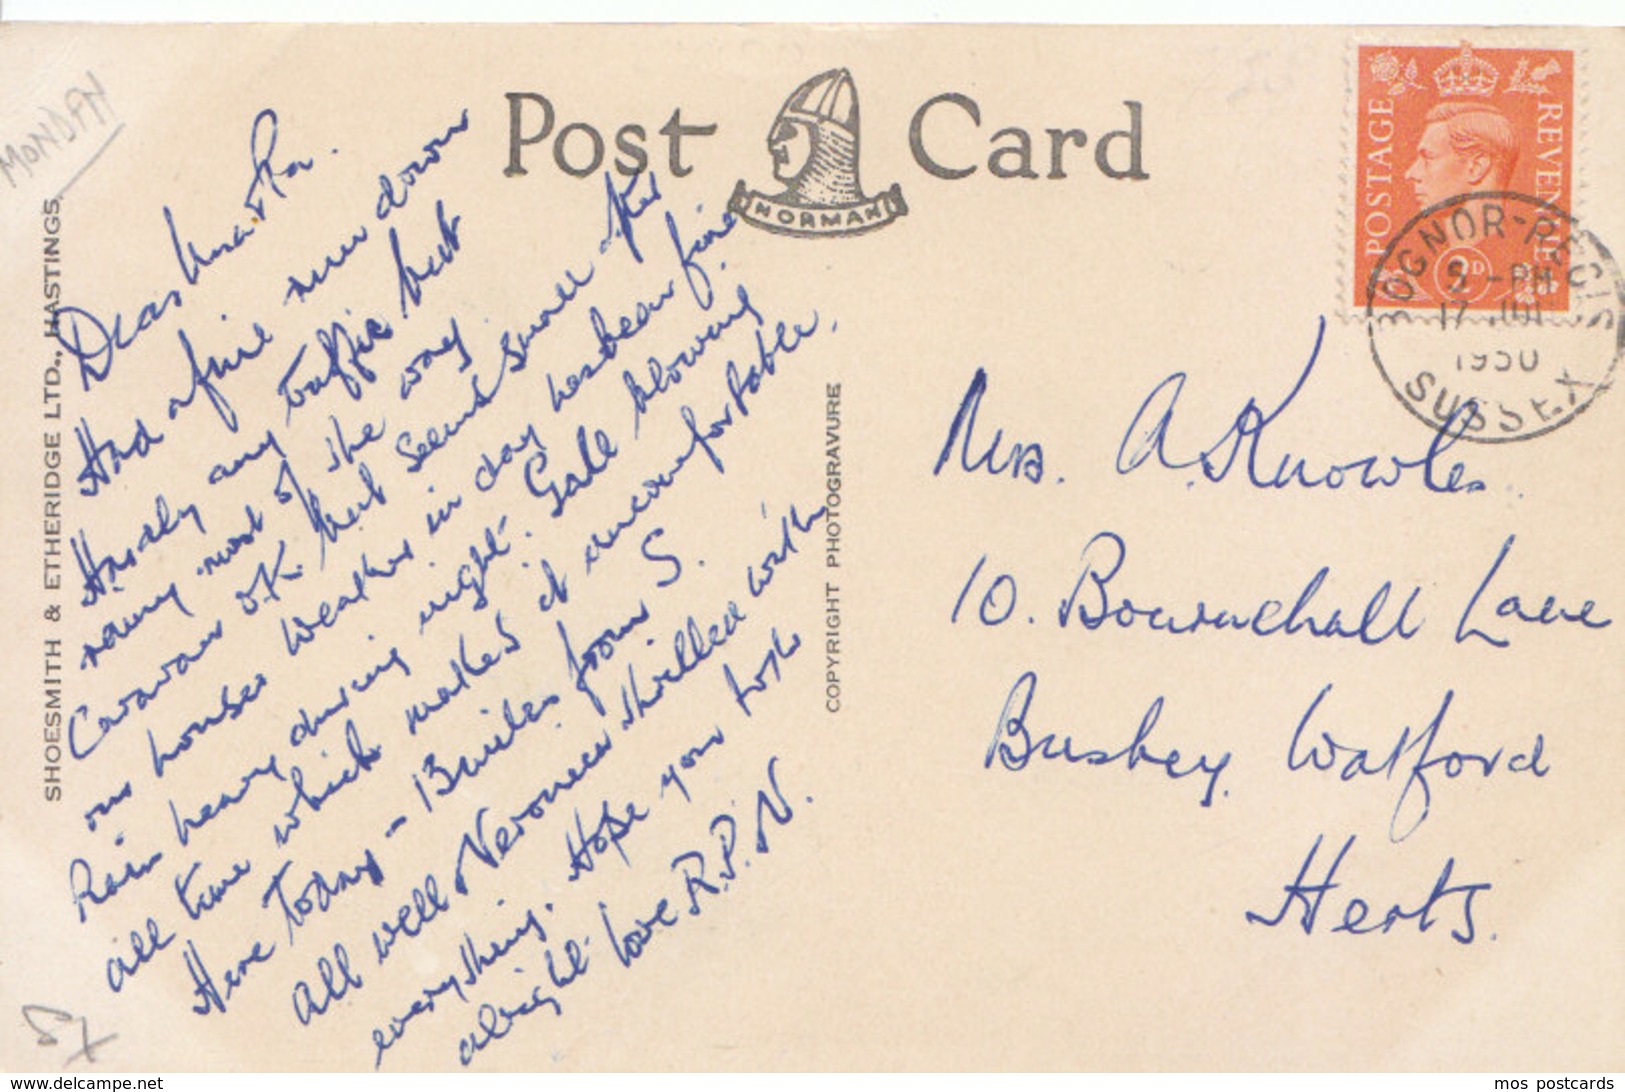 MONDAY
SHOESMITH & ETHERIDGE LTD., HASTINGS.
Post Card
NORMAN
POSTAGE REVENUE
2D
BOGNOR-REGIS
5 -PM
17 JUL
1950
SUSSEX
COPYRIGHT PHOTOGRAVURE
Dear Ma & Pa.
Had a fine run down
Hardly any traffic but
rainy most of the way.
Caravan O.K. but seems small after
our house. Weather in day has been fine
Rain heavy during night. Gale blowing
all time which makes it uncomfortable.
Here today - 13 miles from S.
All well & Veronica thrilled with
everything. Hope you both
alright. Love R.P.V.
Mrs. A. Knowles.
10. Bournehall Lane
Bushey. Watford
Herts.
www.delcampe.net
mos postcards